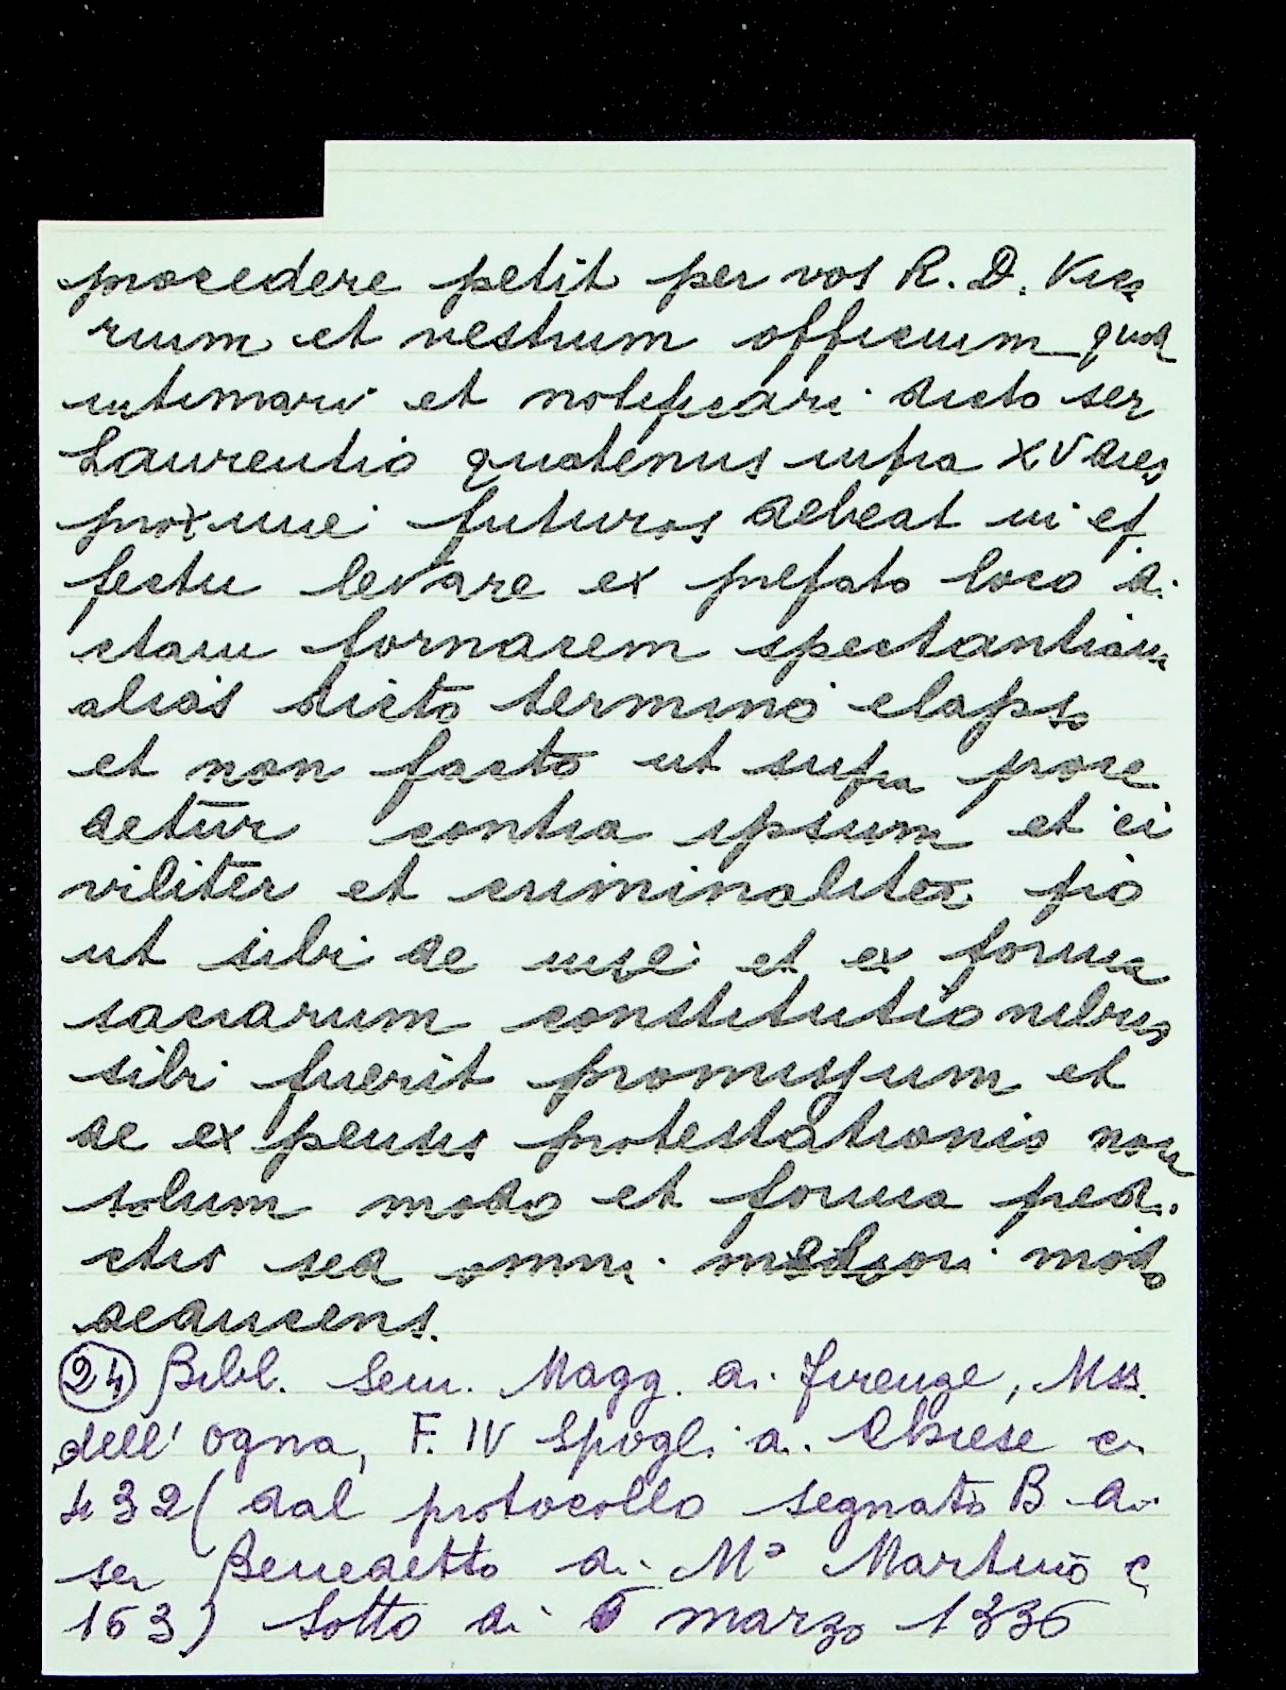 procedere petit per vos R. D. Vica
rium et vestrum officium quod
intimari et notificari dicto ser
Laurentio quatenus infra XV dies
proxime futuros debeat in ef
fectu levare ex prefato loco di
ctam fornacem spectantiam
alias dicto termino elapso
et non facto ut supra proce
detur contra ipsum et ci
viliter et criminaliter pro
ut sibi de iure et ex forma
sacrarum constitutionibus
sibi fuerit promissum et
de expensis protestationis non
solum modo et forma predi
ctis sed omni meliori modo
deducens.
(24) Bibl. Sem. Magg. di Firenze, Mss.
dell'Ogna, F. IV Spogli di Chiese c.
432 (dal protocollo segnato B di
ser Benedetto di Mº Martino c
163) Sotto di 6 marzo 1336